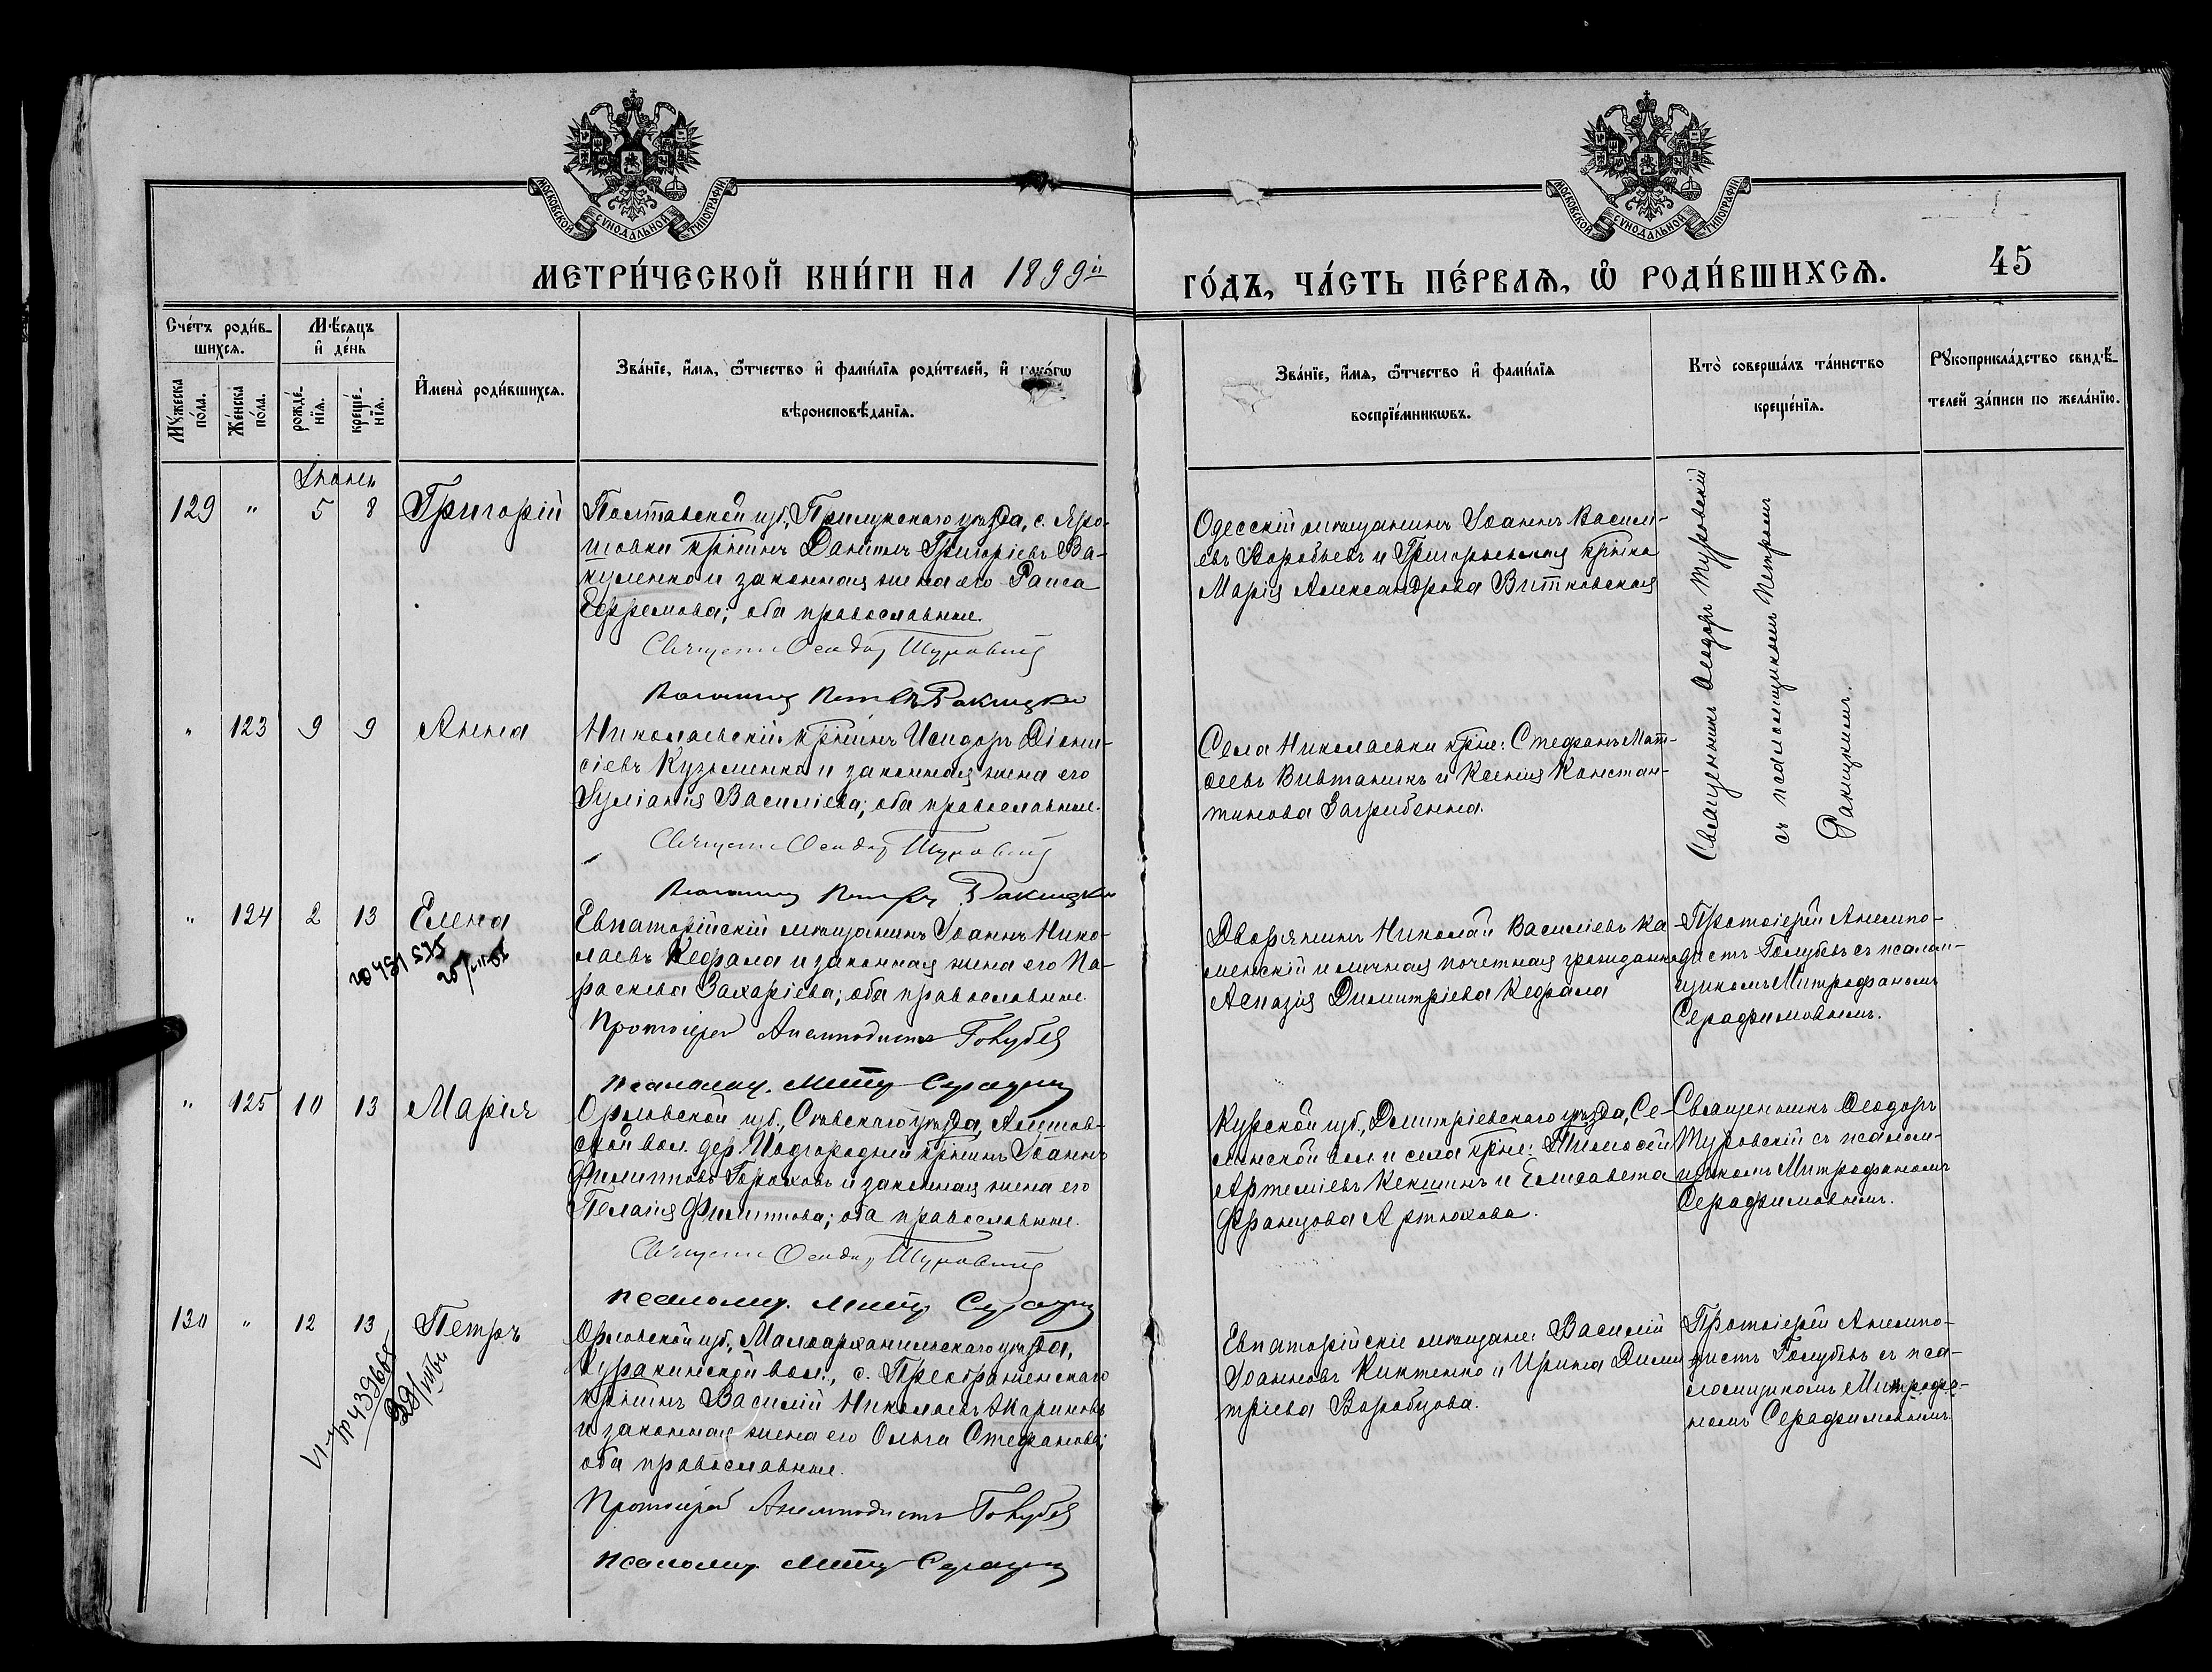 МОСКОВСКОЙ СѴНОДАЛЬНОЙ ТИПОГРАФІИ
МОСКОВСКОЙ СѴНОДАЛЬНОЙ ТИПОГРАФІИ
МЕТРИ́ЧЕСКОЙ КНИ́ГИ НА 1899й
ГО́ДЪ, ЧА́СТЬ ПЕ́РВАѦ, Ѡ҆ РОДИ́ВШИХСѦ.
45
Сче́тъ роди́в-
шихсѧ.
Мꙋ́жеска по́ла.
Же́нска по́ла.
Мѣ́сѧцъ
и҆ де́нь
рожде́-
нїѧ.
креще́-
нїѧ.
И҆мена̀ роди́вшихсѧ.
Зва́нїе, и҆́мѧ, ѻ҆́тчество и҆ фами́лїѧ роди́телей, и҆ како́гѡ
вѣроисповѣ́данїѧ.
Зва́нїе, и҆́мѧ, ѻ҆́тчество и҆ фами́лїѧ
воспрїе́мникѡвъ.
Кто̀ соверша́лъ та́инство
креще́нїѧ.
Рꙋкоприкла́дство свидѣ́-
телей за́писи по жела́нїю.
Іюнь
129 " 5 8 Григорій
Полтавской губ., Прилукскаго уѣзда, с. Яро-
шовки крнинъ Даніилъ Григоріевъ Ва-
куленко и законная жена его Раиса
Ефремова; оба православные.
Священ Ѳеодор Туровский
Псаломщ Петръ Ракицкій
Одесскій мѣщанинъ Іоаннъ Василі-
евъ Воробьевъ и Григорьевская крнка
Марія Александрова Витковская
Священникъ Ѳеодоръ Туровскій
съ псаломщикомъ Петромъ
Ракицкимъ.
" 123 9 9 Анна
Николаевскій крнинъ Исидоръ Діони-
сіевъ Кузьменко и законная жена его
Іуліанія Василіева; оба православные.
Священ Ѳеодор Туровский
Псаломщ Петръ Ракицкій
Села Николаевки крне: Стефанъ Мат-
ѳеевъ Вивтаникъ и Ксенія Констан-
тинова Загрибенна.
" 124 2 13 Елена
Евпаторійскій мѣщанинъ Іоаннъ Нико-
лаевъ Кефала и законная жена его Па-
раскева Захаріева; оба православные.
Протоіерей Анемподистъ Голубевъ
псаломщ. Митр Серафим
Дворянинъ Николай Василіевъ Ка-
менскій и личная почетная гражданка
Аспазія Димитріева Кефала
Протоіерей Анемпо-
дистъ Голубевъ съ псалом-
щикомъ Митрофаномъ
Серафимовымъ.
" 125 10 13 Марія
Орловской губ., Сѣвскаго уѣзда,
ской вол. дер. Подгородней крнинъ Іоаннъ
Филипповъ Гороховъ и законная жена его
Пелагія Филиппова; оба православные.
Священ Ѳеодор Туровский
псаломщ. Митр Серафим
Курской губ., Дмитріевскаго уѣзда, Се-
линской вол. и села крне: Тимоѳей
Артеміевъ Кекшинъ и Елисавета
Францова Артюхова.
Священникъ Ѳеодоръ
Туровскій съ псалом-
щикомъ Митрофаномъ
Серафимовымъ.
130 " 12 13 Петръ
Орловской губ., Малоархангельскаго уѣзда,
Куракинской вол., с. Преображенскаго
крнинъ Василій Николаевъ Жариковъ
и законная жена его Ольга Стефанова;
оба православные.
Протоіерей Анемподистъ Голубевъ
псаломщ. Митр Серафим
Евпаторійскіе мѣщане: Василій
Іоанновъ Киктенко и Ирина Дими-
тріева Воробцова.
Протоіерей Анемпо-
дистъ Голубевъ съ пса-
ломщикомъ Митрофа-
номъ Серафимовымъ.